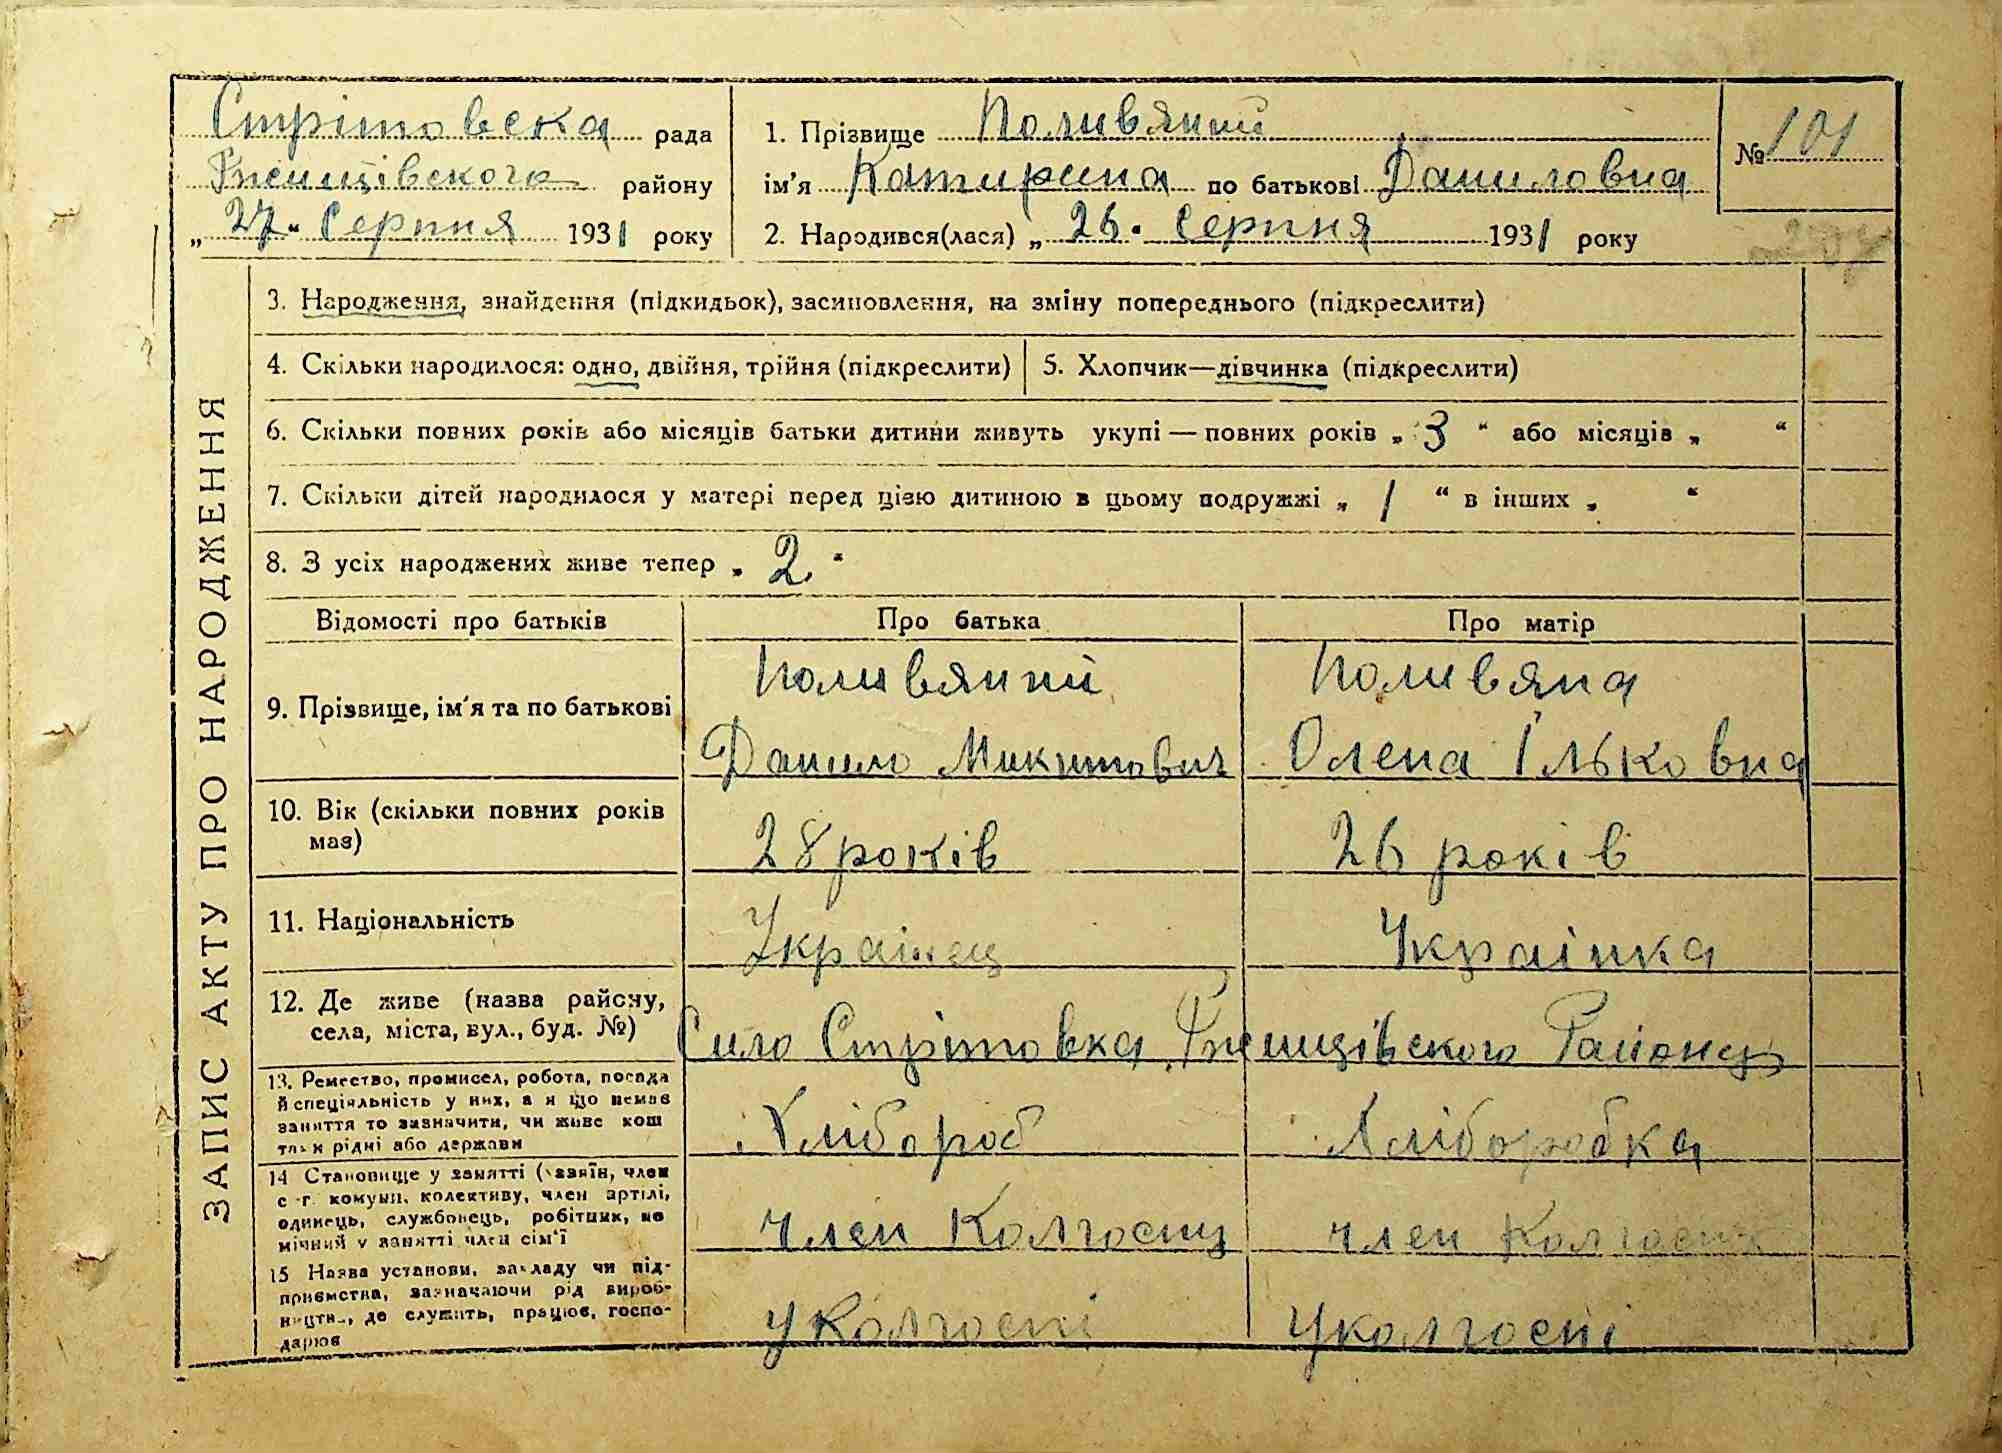 Стрітовска рада
Ржищівского району
„27“ Серпня 1931 року
1. Прізвище Поливяний
ім'я Катирина по батькові Даниловна
2. Народився(лася) „26. Серпня 1931 року
№ 101
ЗАПИС АКТУ ПРО НАРОДЖЕННЯ
3. Народження, знайдення (підкидьок), засиновлення, на зміну попереднього (підкреслити)
4. Скільки народилося: одно, двійня, трійня (підкреслити)
5. Хлопчик—дівчинка (підкреслити)
6. Скільки повних років або місяців батьки дитини живуть укупі — повних років „ 3 “ або місяців „ “
7. Скільки дітей народилося у матері перед цією дитиною в цьому подружжі „ 1 “ в інших „ “
8. З усіх народжених живе тепер „ 2. “
Відомості про батьків Про батька Про матір
9. Прізвище, ім'я та по батькові
Поливяний
Данило Микитович
Поливяна
Олена Ільковна
10. Вік (скільки повних років
має)
28 років
26 років
11. Національність
Українец
Українка
12. Де живе (назва району,
села, міста, вул., буд. №)
Сило Стрітовка Ржищівского Району
13. Ремество, промисел, робота, посада
й спеціяльність у них, а я що немає
заняття то зазначити, чи живе кош
там рідні або держави
Хлібороб
Хліборобка
14 Становище у занятті (хазяїн, член
с-г. комуни, колективу, член артілі,
одинець, службовець, робітник, по
мічний у занятті член сім'ї
член Колгоспу
член Колгоспу
15 Назва установи, закладу чи під-
приємства, зазначаючи рід вироб-
ництва, де служить, працює, госпо-
дарює
у Колгоспі
у колгоспі